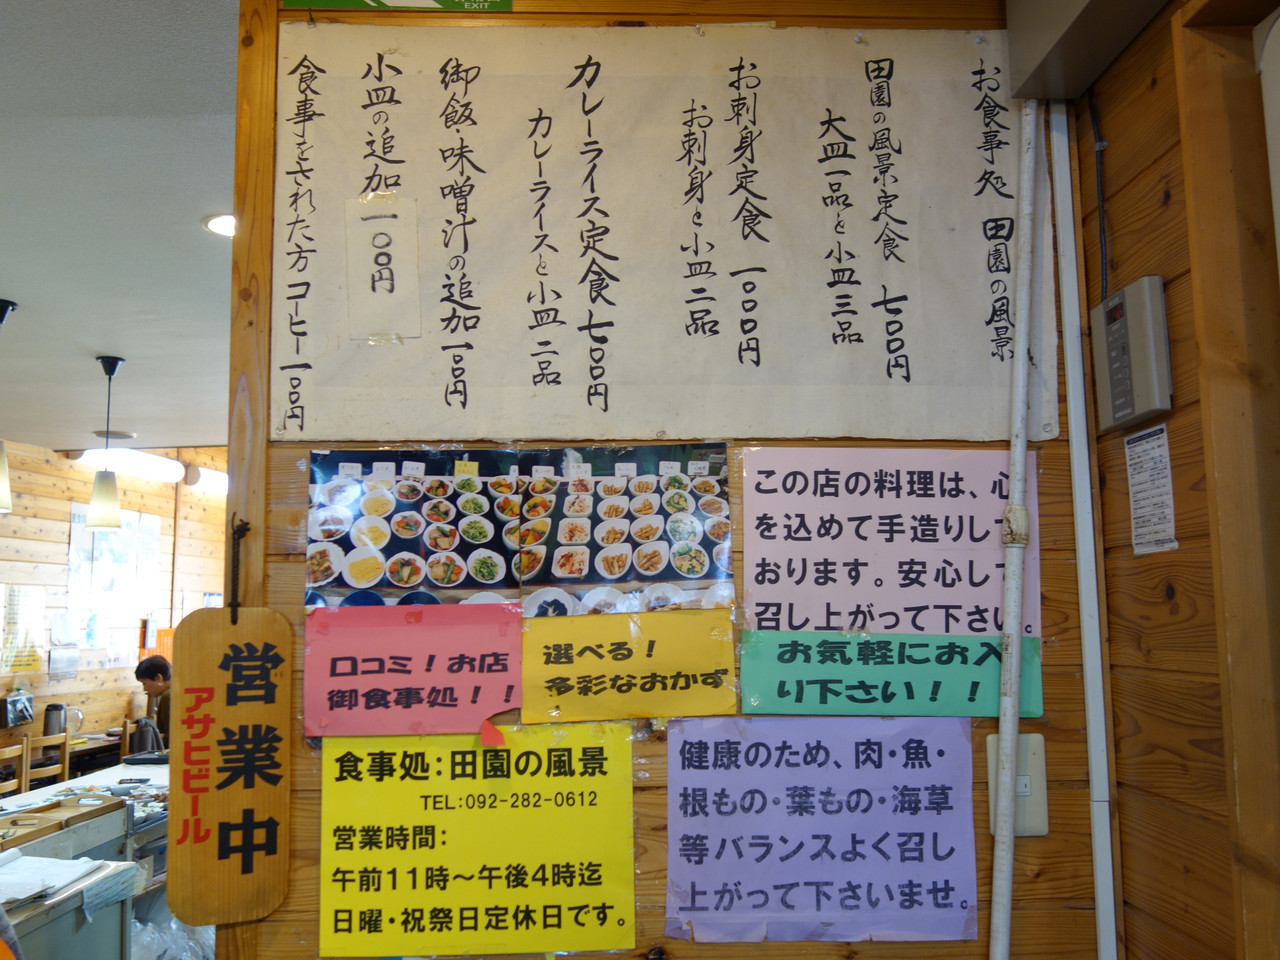 EXIT
お食事処 田園の風景
田園の風景定食 七〇〇円
大皿一品と小皿三品
お刺身定食 一〇〇〇円
お刺身と小皿二品
カレーライス定食 七〇〇円
カレーライスと小皿二品
御飯・味噌汁の追加 一〇〇円
小皿の追加 一〇〇円
食事をされた方 コーヒー 一〇〇円
この店の料理は、心
を込めて手造りして
おります。安心して
召し上がって下さい。
お気軽にお入
り下さい！！
口コミ！お店
御食事処！！
選べる！
多彩なおかず
営業中
アサヒビール
食事処：田園の風景
TEL：092-282-0612
営業時間：
午前11時～午後4時迄
日曜・祝祭日定休日です。
健康のため、肉・魚・
根もの・葉もの・海草
等バランスよく召し
上がって下さいませ。